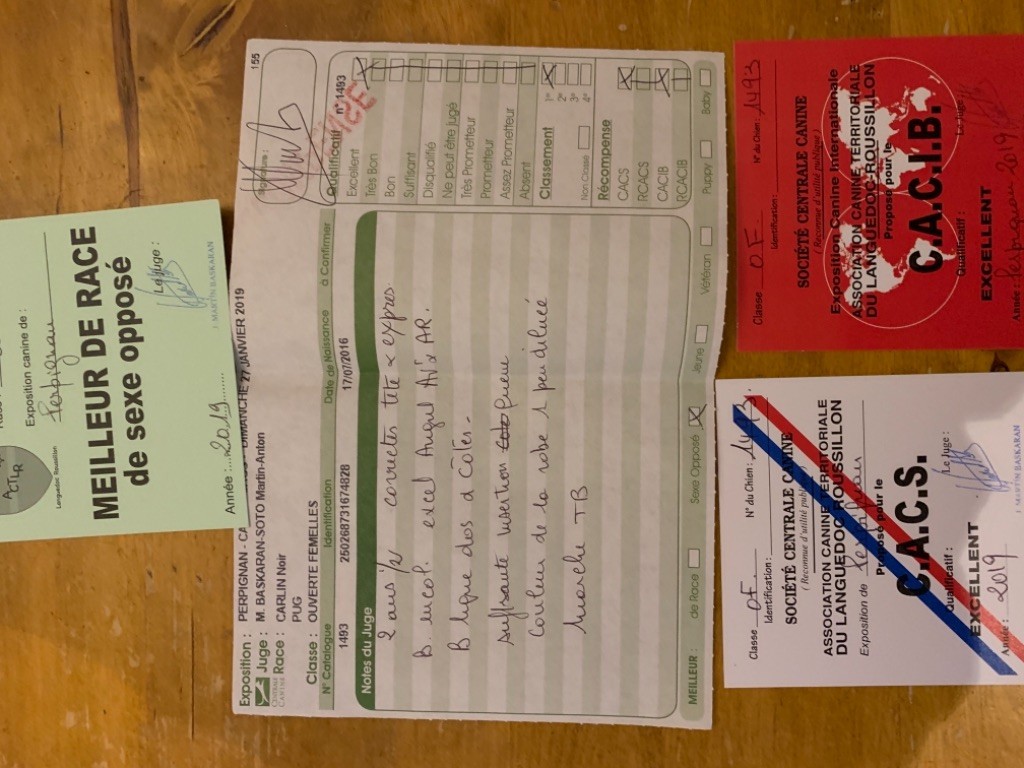 Exposition canine de :
Perpignan
MEILLEUR DE RACE
de sexe opposé
Année : 2019
Le Juge :
J. MARTIN BASKARAN
ACTLR
Languedoc Roussillon
155
Exposition : PERPIGNAN - CA DIMANCHE 27 JANVIER 2019
Juge : M. BASKARAN-SOTO Martin-Anton
Race : CARLIN Noir
PUG
Classe : OUVERTE FEMELLES
CENTRALE CANINE
N° Catalogue Identification Date de Naissance à Confirmer
1493 250268731674828 17/07/2016
Notes du Juge
2 ans 1/2 correctes tete & expres
B. encol. excel Angul AV & AR.
B ligne dos & côtes -
suffisante insertion queue
Couleur de la robe 1 peu diluée
Marche TB
MEILLEUR : de Race Sexe Opposé Jeune Vétéran Puppy Baby
Signature :
Qualificatif n° 1493
Excellent
Très Bon
Bon
Suffisant
Disqualifié
Ne peut être jugé
Très Prometteur
Prometteur
Assez Prometteur
Absent
Classement
1er
2e
3e
4e
Non Classé
Récompense
CACS
RCACS
CACIB
RCACIB
Classe OF N° du Chien : 1493
Identification :
SOCIÉTÉ CENTRALE CANINE
(Reconnue d'utilité publique)
Exposition Canine Internationale
ASSOCIATION CANINE TERRITORIALE
DU LANGUEDOC-ROUSSILLON
Proposé pour le
C.A.C.I.B.
Qualificatif : Le Juge :
EXCELLENT
Année : Perpignan 2019
Classe OF. N° du Chien : 1493
Identification :
SOCIÉTÉ CENTRALE CANINE
(Reconnue d'utilité publique)
ASSOCIATION CANINE TERRITORIALE
DU LANGUEDOC-ROUSSILLON
Exposition de Perpignan
Proposé pour le
C.A.C.S.
Qualificatif : Le Juge :
EXCELLENT
Année : 2019
J. MARTIN BASKARAN